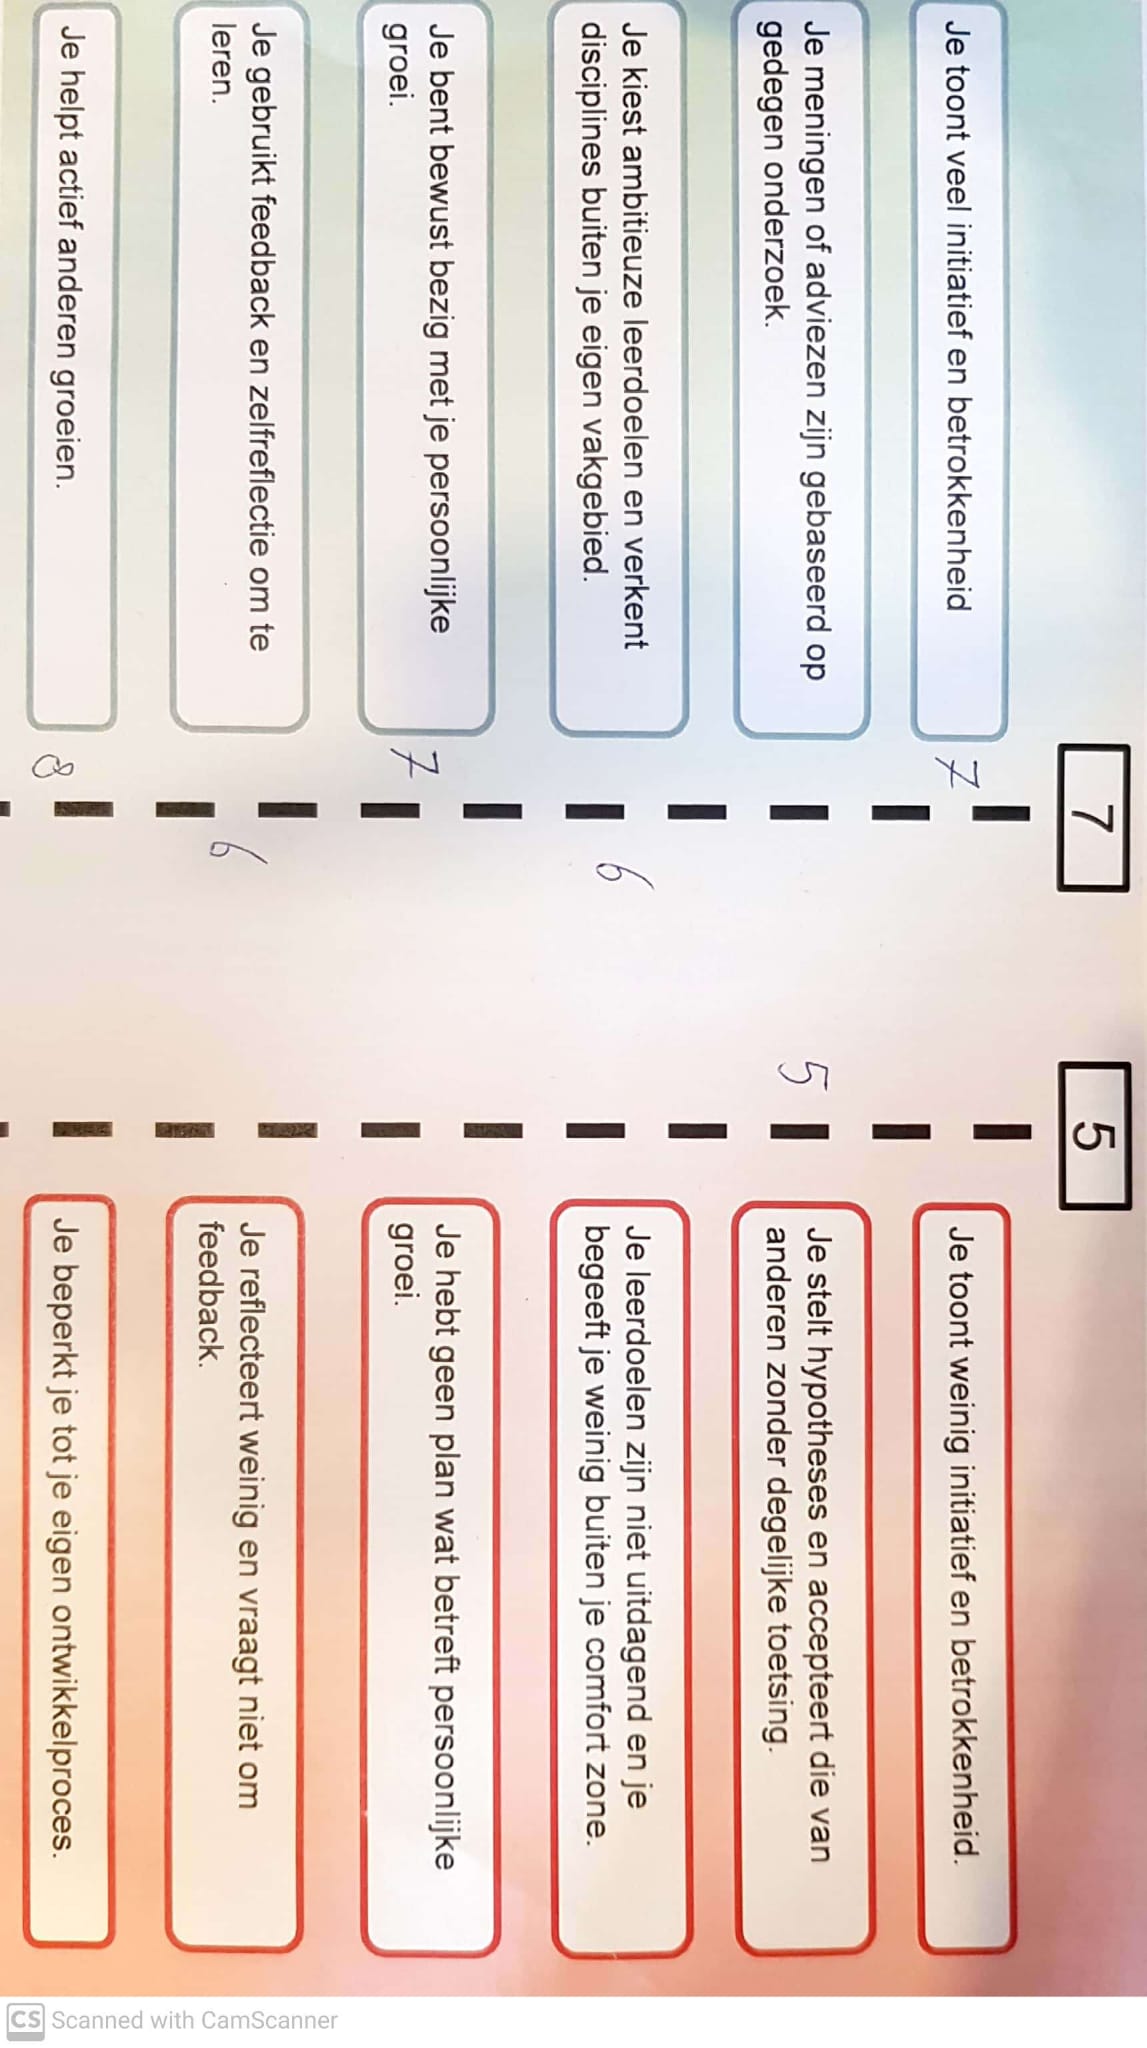 7
5
Je toont veel initiatief en betrokkenheid
7
Je toont weinig initiatief en betrokkenheid.
Je meningen of adviezen zijn gebaseerd op
gedegen onderzoek.
5
Je stelt hypotheses en accepteert die van
anderen zonder degelijke toetsing.
Je kiest ambitieuze leerdoelen en verkent
disciplines buiten je eigen vakgebied.
6
Je leerdoelen zijn niet uitdagend en je
begeeft je weinig buiten je comfort zone.
Je bent bewust bezig met je persoonlijke
groei.
7
Je hebt geen plan wat betreft persoonlijke
groei.
Je gebruikt feedback en zelfreflectie om te
leren.
6
Je reflecteert weinig en vraagt niet om
feedback.
Je helpt actief anderen groeien.
8
Je beperkt je tot je eigen ontwikkelproces.
CS Scanned with CamScanner